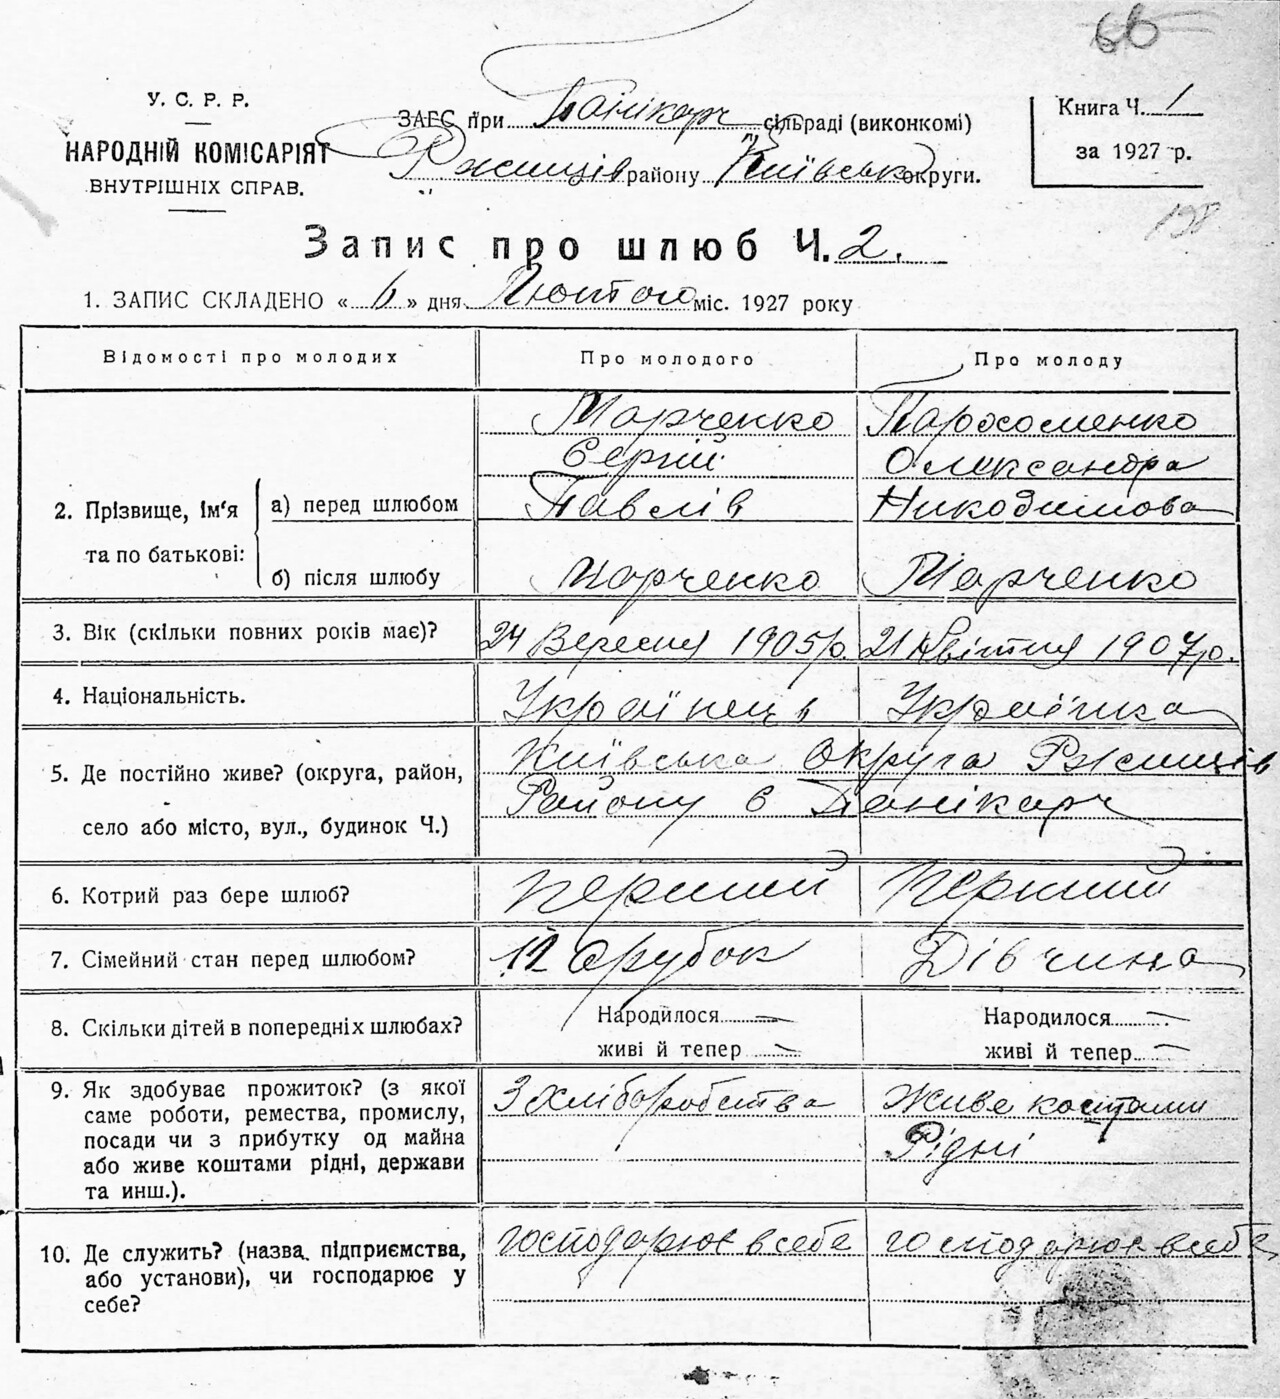 66
У. С. Р. Р.
НАРОДНІЙ КОМІСАРІЯТ
ВНУТРІШНІХ СПРАВ.
ЗАГС при Панікарч сільраді (виконкомі)
Ржищів району Київськ округи.
Книга Ч. 1
за 1927 р.
198
Запис про шлюб Ч. 2.
1. ЗАПИС СКЛАДЕНО « 6 » дня Лютого міс. 1927 року
Відомості про молодих
Про молодого
Про молоду
2. Прізвище, ім'я та по батькові:
а) перед шлюбом
Марченко
Сергій
Павлів
Пархоменко
Олександра
Никодимова
б) після шлюбу
Марченко
Марченко
3. Вік (скільки повних років має)?
24 Вересня 1905 р.
21 Квітня 1907 р.
4. Національність.
Українець
Українка
5. Де постійно живе? (округа, район,
село або місто, вул., будинок Ч.)
Київська Округа Ржищів
Району с Панікарч
6. Котрий раз бере шлюб?
Перший
Перший
7. Сімейний стан перед шлюбом?
Парубок
Дівчина
8. Скільки дітей в попередніх шлюбах?
Народилося —
живі й тепер —
Народилося —
живі й тепер —
9. Як здобуває прожиток? (з якої
саме роботи, ремества, промислу,
посади чи з прибутку од майна
або живе коштами рідні, держави
та инш.).
З хліборобства
Живе коштами
Рідні
10. Де служить? (назва підприємства,
або установи), чи господарює у
себе?
господарює в себе
господарює в себе